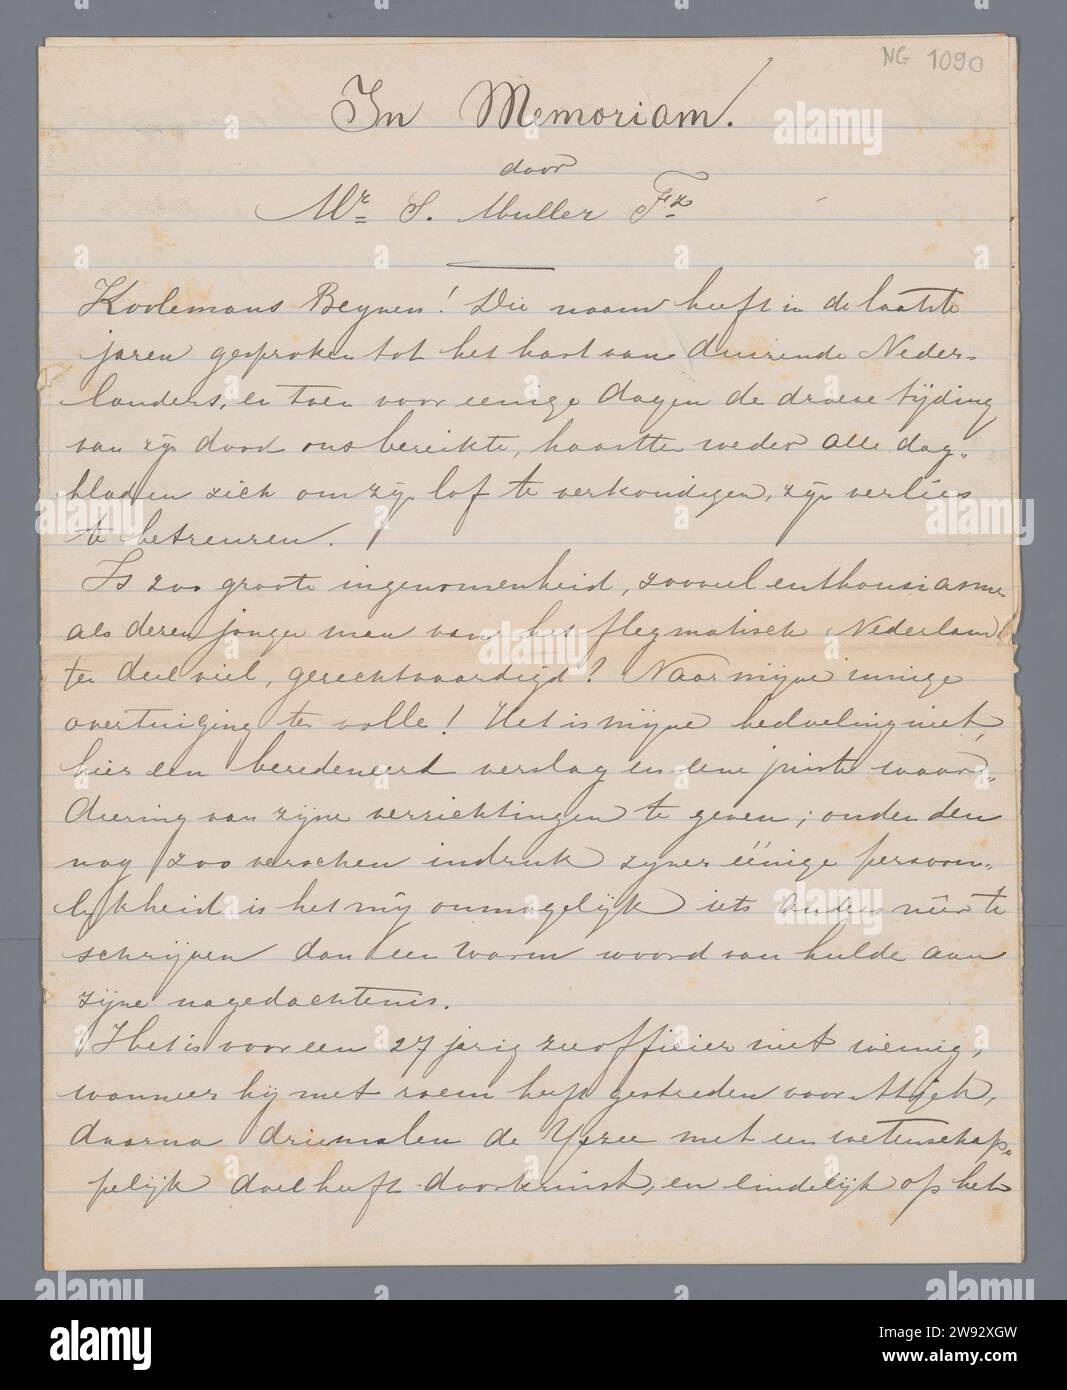 NG 1090
In Memoriam.
door
Mr. S. Muller Fz
Koolemans Beynen! Die naam heeft in de laatste
jaren gesproken tot het hart van duizende Neder-
landers, en toen voor eenige dagen de droeve tijding
van zijn dood ons bereikte, haastten weder alle dag-
bladen zich om zijn lof te verkondigen, zijn verlies
te betreuren.
Is zoo groote ingenomenheid, zooveel enthousiasme
als deren jonger man van het flegmatisch Nederland
ten deel viel, gerechtvaardigd? Naar mijne innige
overtuiging ten volle! Het is mijne bedoeling niet,
hier een beredeneerd verslag en eene juiste waar-
deering van zijne verrichtingen te geven; onder den
nog zoo verschen indruk zyner éénige persoon-
lijkheid is het mij onmogelijk iets anders neer te
schrijven dan een warm woord van hulde aan
zijne nagedachtenis.
Het is voor een 27 jarig zeeofficier niet weinig,
wanneer hij met roem heeft gestreden voor Atjeh,
daarna driemalen de Yszee met een wetenschap-
pelijk doel heeft doorkruist, en eindelijk op het
alamy
Image ID: 2W92XGW
www.alamy.com